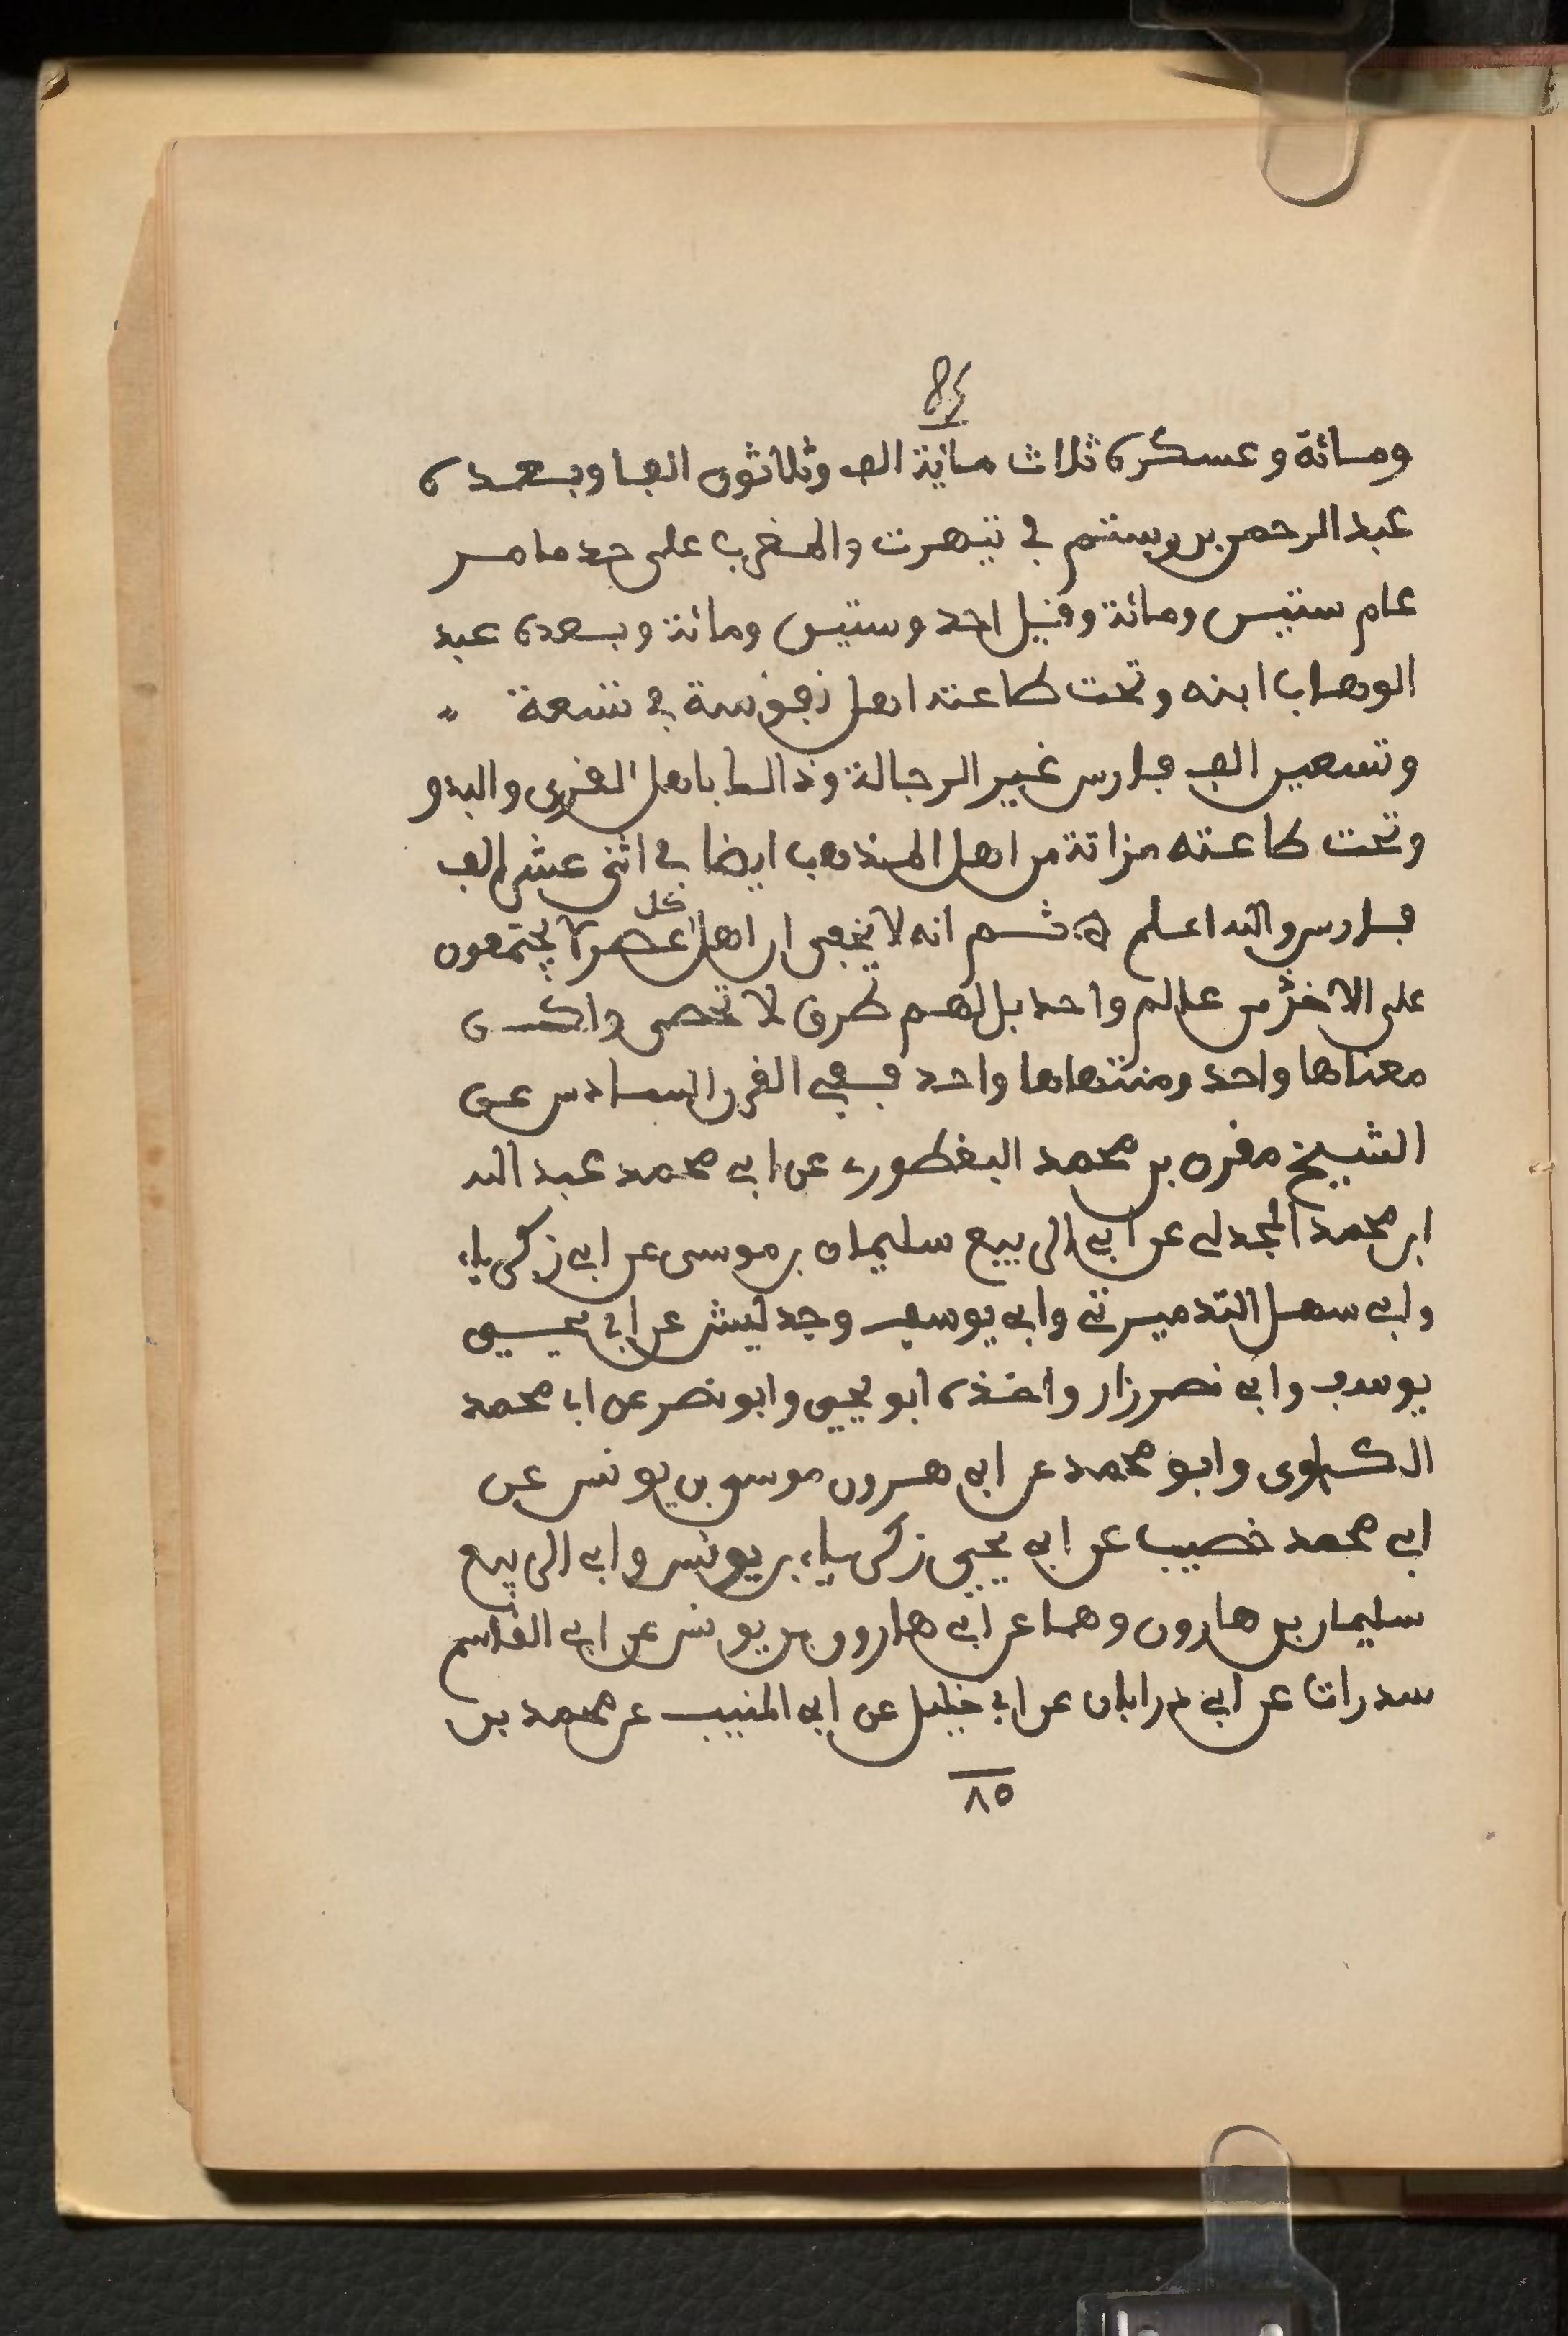 85
ومائة وعسكره ثلاث مائة الف وثلاثون الفا وبعده
عبد الرحمن بن رستم في تيهرت والمغرب على حد ما مر
عام ستين ومائة وقيل احد وستين ومائة وبعده عبد
الوهاب ابنه وتحت طاعته اهل نفوسة في تسعة
وتسعين الف فارس غير الرجالة وذالك باهل القرى والبدو
وتحت طاعته مزاتة من اهل المذهب ايضا في اثني عشر الف
فارس والله اعلم ه ثم انه لا يخفى ان اهل كل عصر لا يجتمعون
على الاخذ من عالم واحد بل لهم طرق لا تحصى ولكن
معناها واحد ومنتهاها واحد ففي القرن السادس عن
الشيخ مقرن بن محمد البغطوري عن ابي محمد عبد الله
ابن محمد المجدلي عن ابي الربيع سليمان بن موسى عن ابي زكرياء
وابي سهل التدميرتي وابي يوسف وجدليش عن ابي يحيى
يوسف وابي نصر زار واخذه ابو يحيى وابو نصر عن ابا محمد
الكباوي وابو محمد عن ابي هرون موسى بن يونس عن
ابي محمد خصيب عن ابي يحيى زكرياء بن يونس وابي الربيع
سليمان بن هارون وهما عن ابي هارون بن يونس عن ابي القاسم
سدرات عن ابي ذر ابان عن ابي خليل عن ابي المنيب عن محمد بن
٨٥